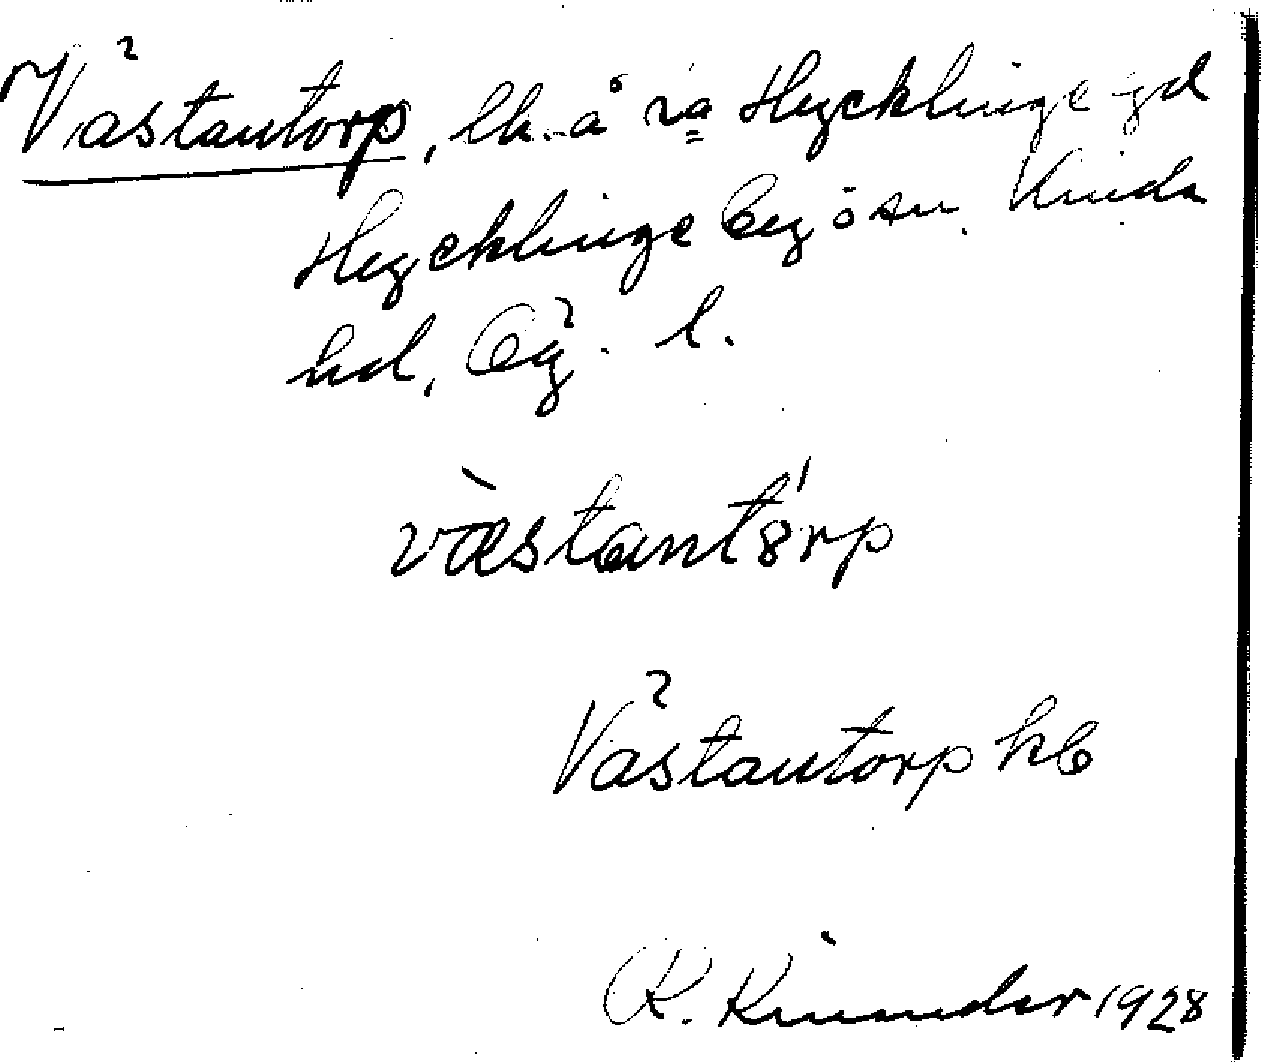 Västantorp, lh. å ra Hycklinge gd
Hycklinge by ö sn. Kinda
hd, Ög. l.
væ̀stantórp
Västantorp hb
K. Kinnander 1928